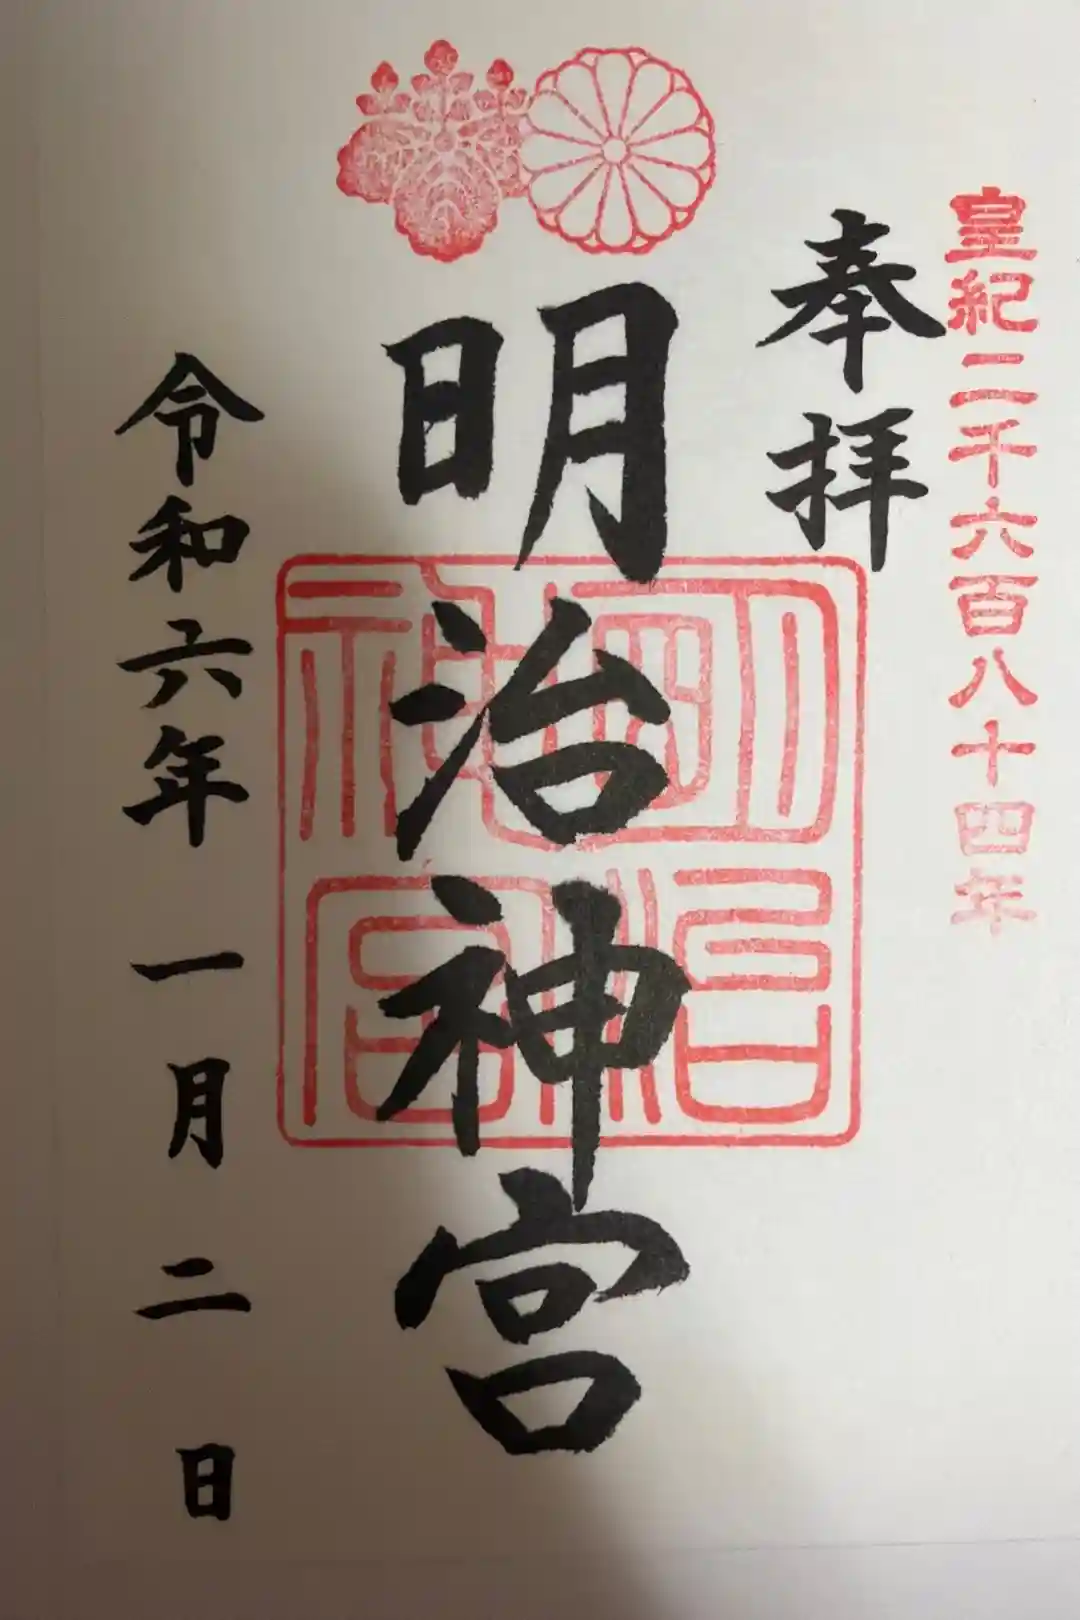 皇紀二千六百八十四年
奉拝
明治神宮
明治
神宮
令和六年 一月 二日